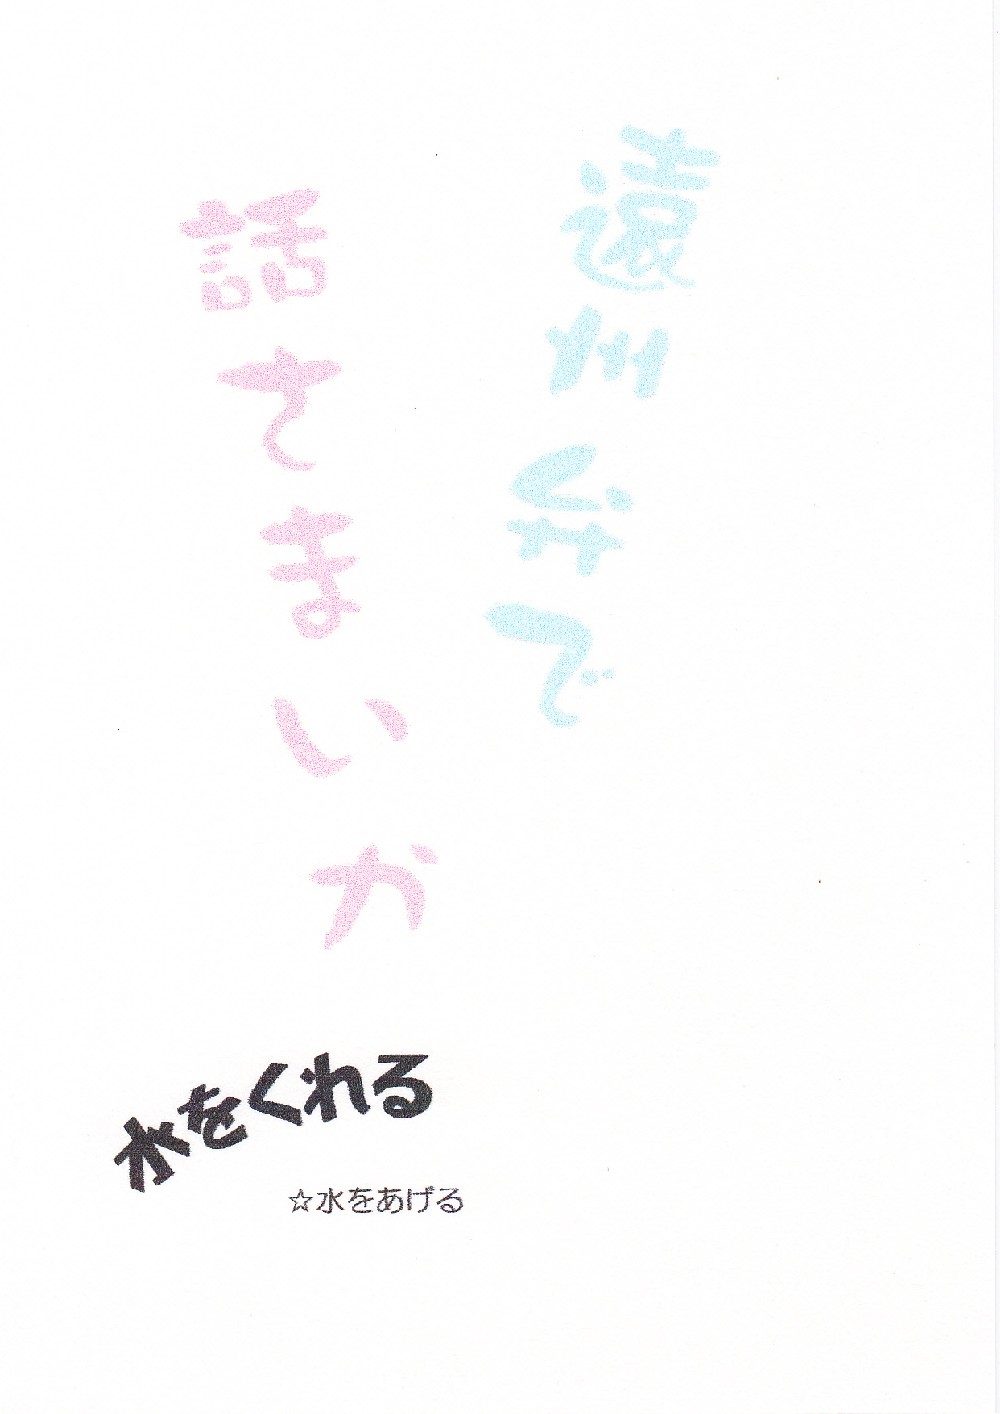 遠州弁で
話てまいか
水をくれる
☆水をあげる